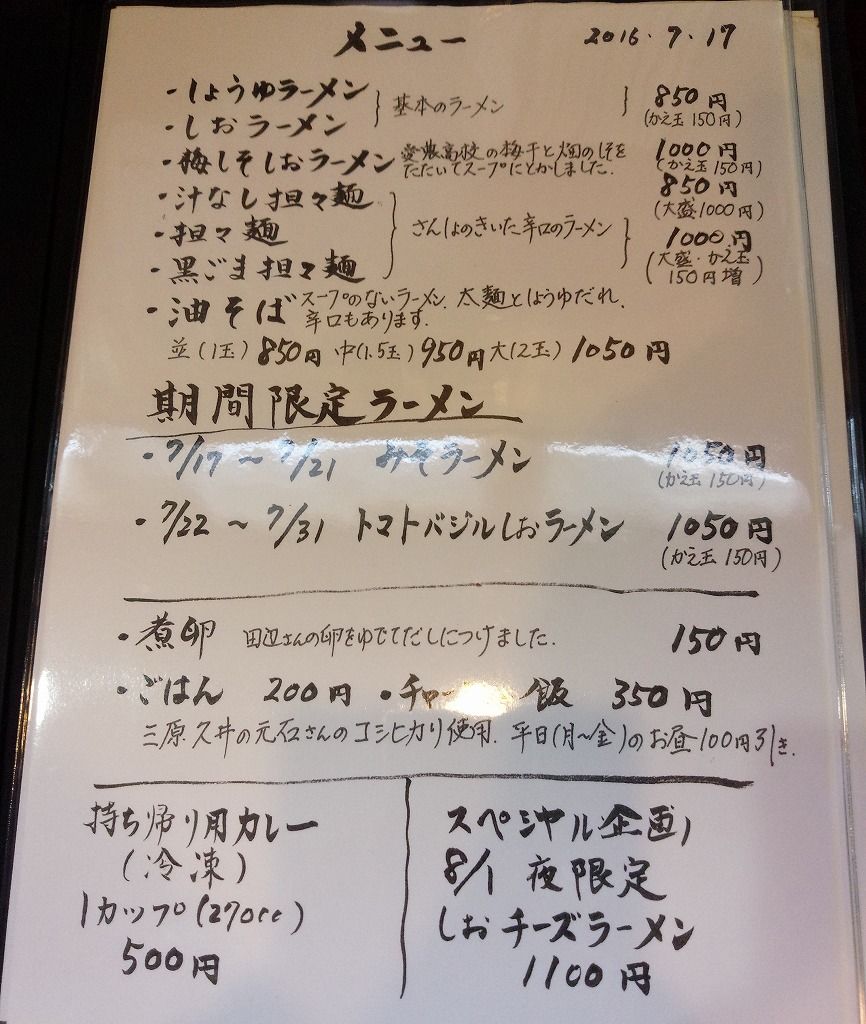 メニュー 2016.7.17
・しょうゆラーメン
・しおラーメン
基本のラーメン 850円
(かえ玉 150円)
・梅しそしおラーメン 愛農高校の梅干と畑のしそを
たたいてスープにとかしました. 1000円
(かえ玉 150円)
・汁なし担々麺 850円
(大盛1000円)
・担々麺 さんしょのきいた辛口のラーメン 1000円
・黒ごま担々麺 (大盛・かえ玉
150円増)
・油そば スープのないラーメン. 太麺としょうゆだれ.
辛口もあります.
並(1玉) 850円 中(1.5玉) 950円 大(2玉) 1050円
期間限定ラーメン
・7/17～7/21 みそラーメン 1050円
(かえ玉 150円)
・7/22～7/31 トマトバジルしおラーメン 1050円
(かえ玉 150円)
・煮卵 田辺さんの卵をゆでてだしにつけました. 150円
・ごはん 200円 ・チャーシュー飯 350円
三原.久井の元石さんのコシヒカリ使用. 平日(月～金)のお昼100円引き.
持ち帰り用カレー
(冷凍)
1カップ(270cc)
500円
スペシャル企画！
8/1 夜限定
しおチーズラーメン
1100円